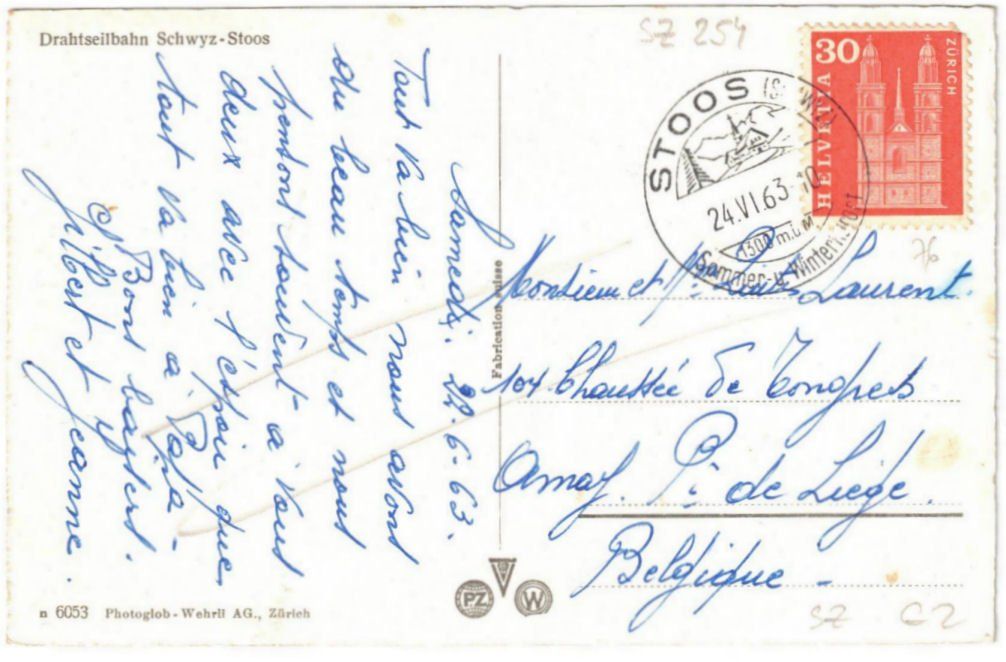 Drahtseilbahn Schwyz-Stoos
SZ 254
Samedi. 22-6-63.
Tout va bien nous avons
du beau temps et nous
pensons souvent à vous
deux avec l'éspoir que
tout va bien à Papa-
Bons baysers.
Gilbert et Jeanne.
Fabrication suisse
HELVETIA
30
ZÜRICH
STOOS (SCHWYZ)
24.VI.63-10
1300 m.ü.M
Sommer-u. Winterkurort
76
Monsieur et Laurent.
104 Chaussée de Tongres
Amay. P. de Liège.
Belgique-
n 6053 Photoglob-Wehrli AG., Zürich
PZ
V
W
SZ